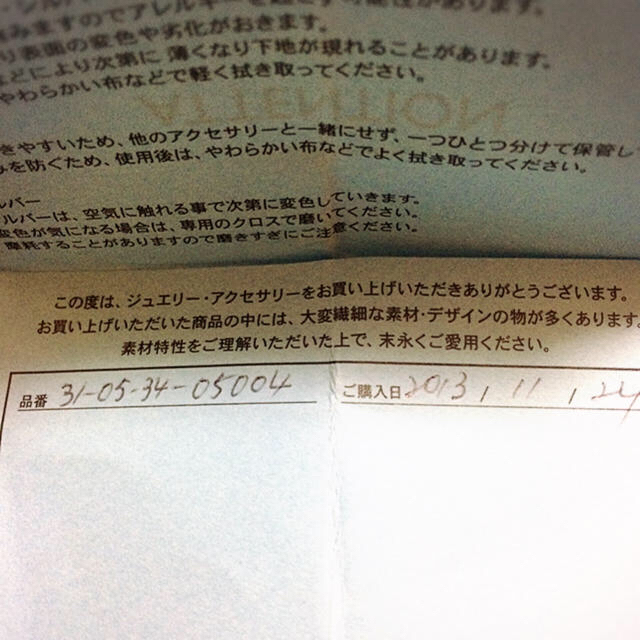 みますのでアレルギーを起こす可能性があります。
り表面の変色や劣化がおきます。
などにより次第に 薄くなり下地が現れることがあります。
やわらかい布などで軽く拭き取ってください。
ATTENTION
きやすいため、他のアクセサリーと一緒にせず、一つひとつ分けて保管し
みを防ぐため、使用後は、やわらかい布などでよく拭き取ってください。
ルバー
ルバーは、空気に触れる事で次第に変色していきます。
変色が気になる場合は、専用のクロスで磨いてください。
摩耗することがありますので磨きすぎにご注意ください。
この度は、ジュエリー・アクセサリーをお買い上げいただきありがとうございます。
お買い上げいただいた商品の中には、大変繊細な素材・デザインの物が多くあります。
素材特性をご理解いただいた上で、末永くご愛用ください。
品番 31-05-34-05004 ご購入日 2013 / 11 / 24